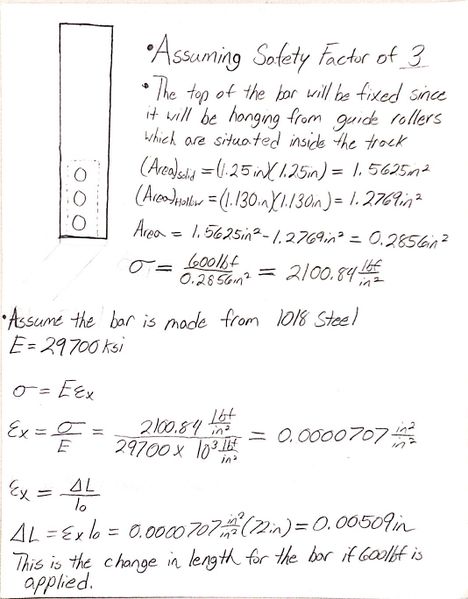 • Assuming Safety Factor of 3
• The top of the bar will be fixed since
it will be hanging from guide rollers
which are situated inside the track
(Area)solid = (1.25in)(1.25in) = 1.5625in²
(Area)Hollow = (1.130in)(1.130in) = 1.2769in²
Area = 1.5625in² - 1.2769in² = 0.2856in²
σ = 600lbf / 0.2856in² = 2100.84 lbf/in²
• Assume the bar is made from 1018 Steel
E = 29700ksi
σ = Eεx
εx = σ/E = 2100.84 lbf/in² / 29700 x 10³ lbf/in² = 0.0000707 in²/in²
εx = ΔL/lo
ΔL = εx lo = 0.0000707 in²/in² (72in) = 0.00509in
This is the change in length for the bar if 600lbf is
applied.